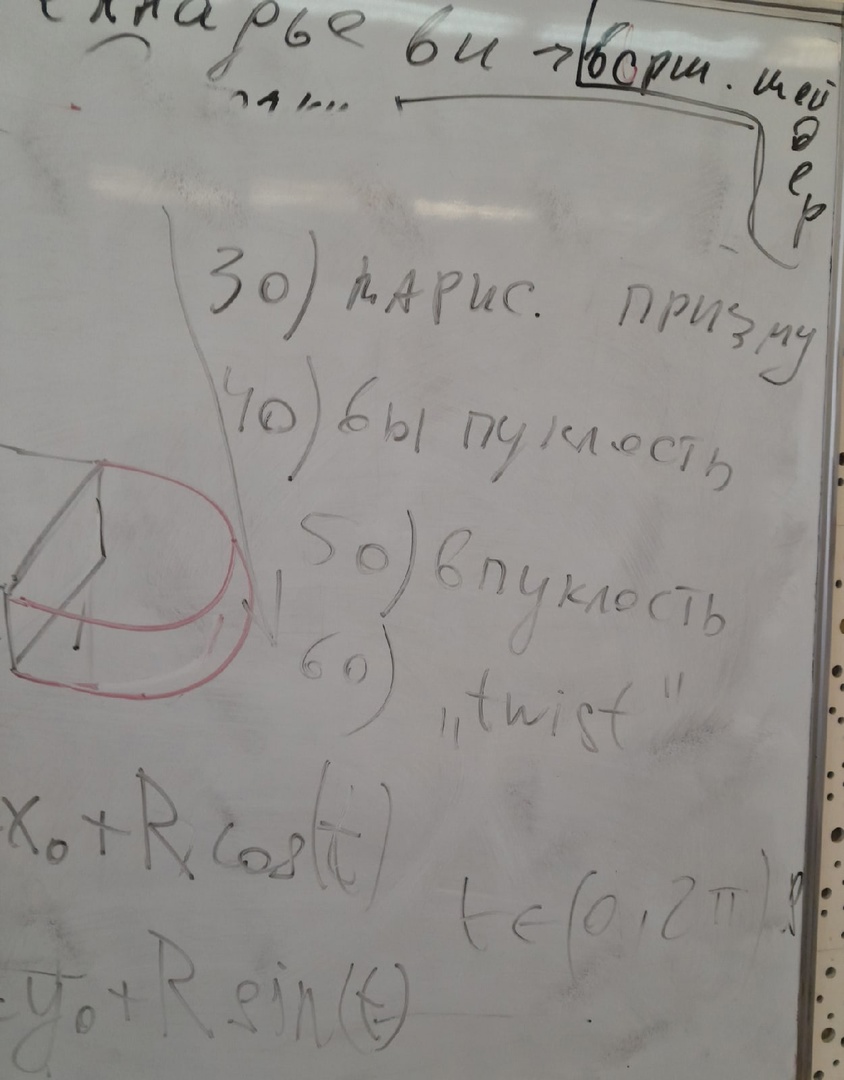 ви → верш. шейдер
30) нарис. призму
40) выпуклость
50) впуклость
60) „twist"
x₀ + R cos(t)
t ∈ (0, 2π)
y₀ + R sin(t)